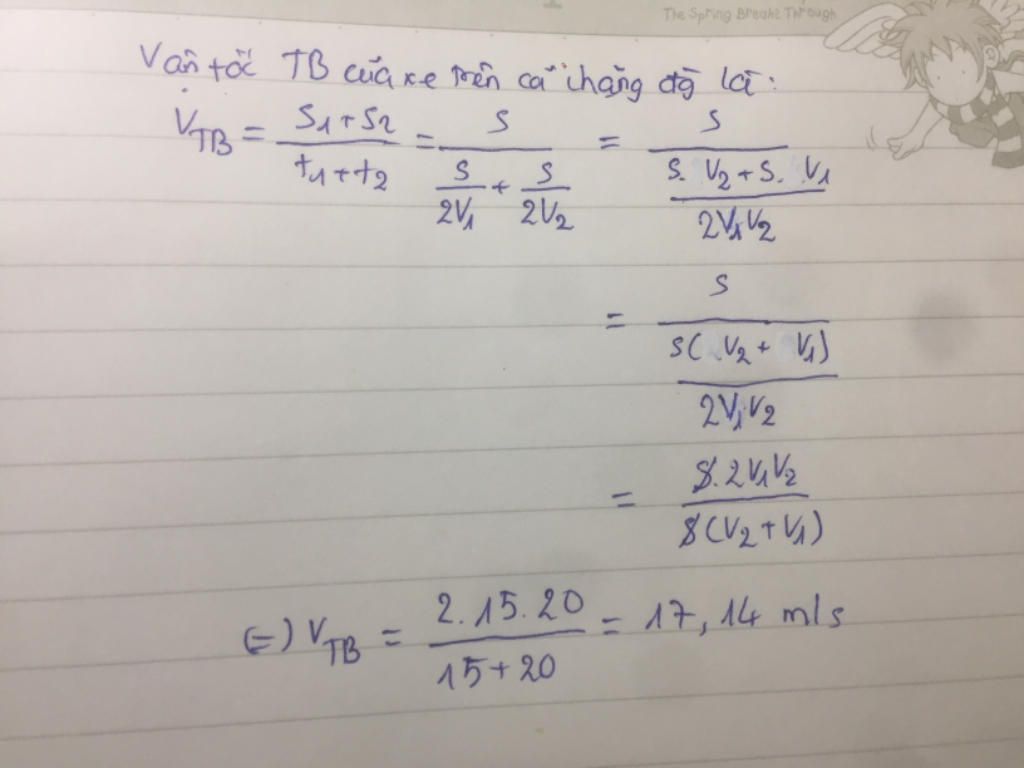 The Spring Breaks Through
Vận tốc TB của xe trên cả chặng đg là:
V_TB = (S1 + S2)/(t1 + t2) = S/(S/(2V1) + S/(2V2)) = S/((S. V2 + S. V1)/(2V1V2))
= S/((S( V2 + V1))/(2V1V2))
= (S.2V1V2)/(S(V2 + V1))
(=) V_TB = (2.15.20)/(15+20) = 17,14 m/s